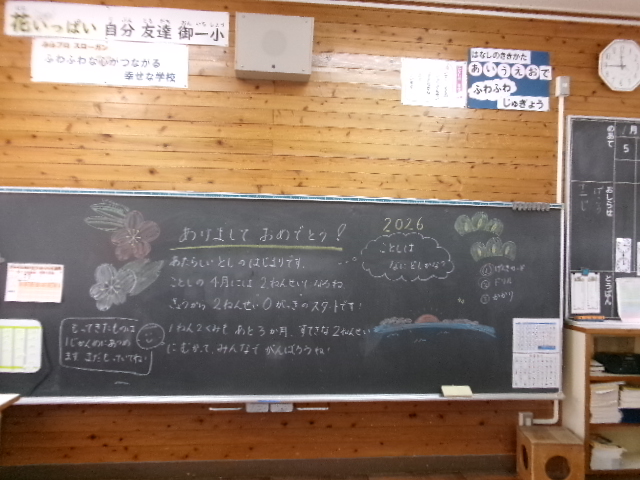 花いっぱい 自分 友達 御一小
ふわプロ スローガン
ふわふわな心がつながる
幸せな学校
はなしのききかた
あいうえおで
ふわふわ
じゅぎょう
あけまして おめでとう!
あたらしいとしのはじまりです。
ことしの4月には 2ねんせいになるね
きょうから 2ねんせい0がっきのスタートです!
1ねん2くみも あと3か月、すてきな2ねんせい
にむかって、みんなで がんばろうね!
2026
ことしは
なにどしかな?
もってきたものは
1じかんめにあつめ
ます まだもっていてね!
月
5
のあて
おしらせ
とうばん